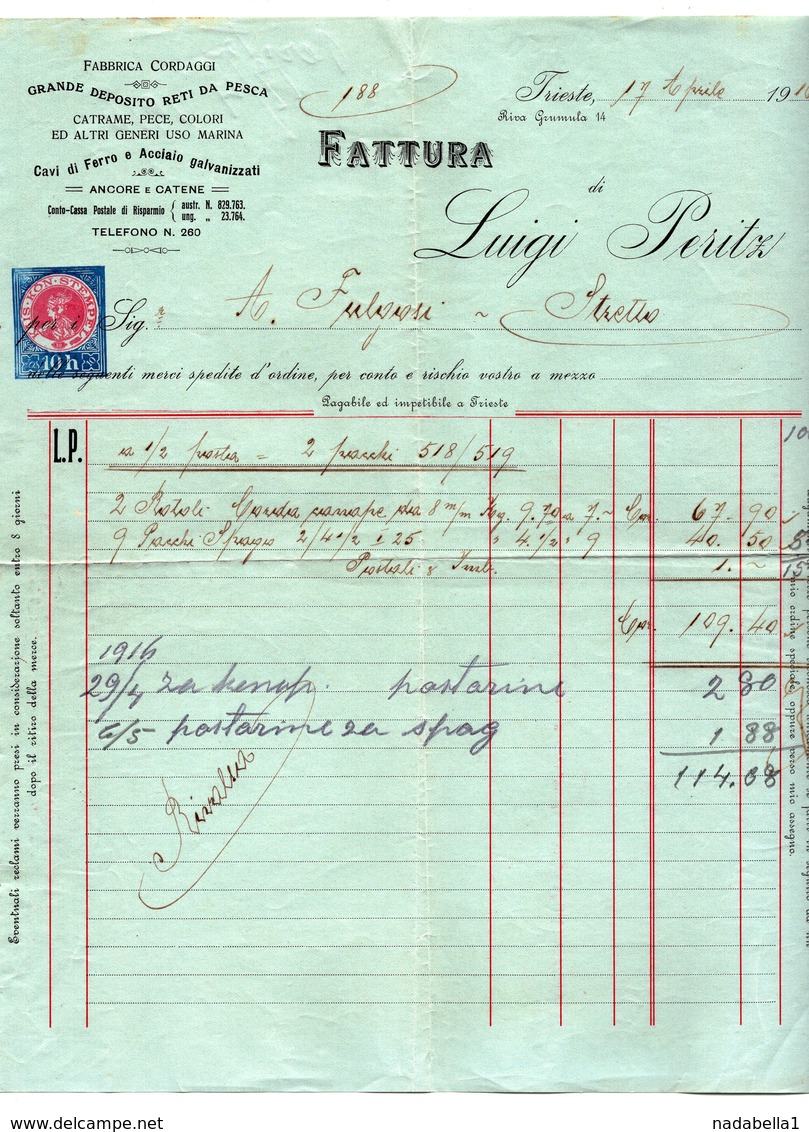 FABBRICA CORDAGGI
GRANDE DEPOSITO RETI DA PESCA
CATRAME, PECE, COLORI
ED ALTRI GENERI USO MARINA
Cavi di Ferro e Acciaio galvanizzati
ANCORE E CATENE
Conto-Cassa Postale di Risparmio { austr. N. 829.763.
ung. „ 23.764.
TELEFONO N. 260
188
Trieste, 17 Aprile 191
Riva Grumula 14
FATTURA
di
Luigi Peritz
KON. STEMPEL
10 h
per i Sig. A. Fulgosi ~ Stretto
seguenti merci spedite d'ordine, per conto e rischio vostro a mezzo
Pagabile ed impetibile a Trieste
L.P.
a 1/2 posta = 2 pacchi 518/519
2 Rotoli Corda canape da 8 m/m Kg. 9.70 a 7.~ Cor. 67.90
9 Pacchi Spago 2/4 1/2 25 " 4.1/2 " 9 40.50
Postali & 1.~
Cor. 109.40
1916
29/4 za konop. postarine 2 80
6/5 postarine za spag 1 88
114.08
Eventuali reclami verranno presi in considerazione soltanto entro 8 giorni
dopo il ritiro della merce.
mio ordine speciale oppure verso mio assegno.
nadabella1